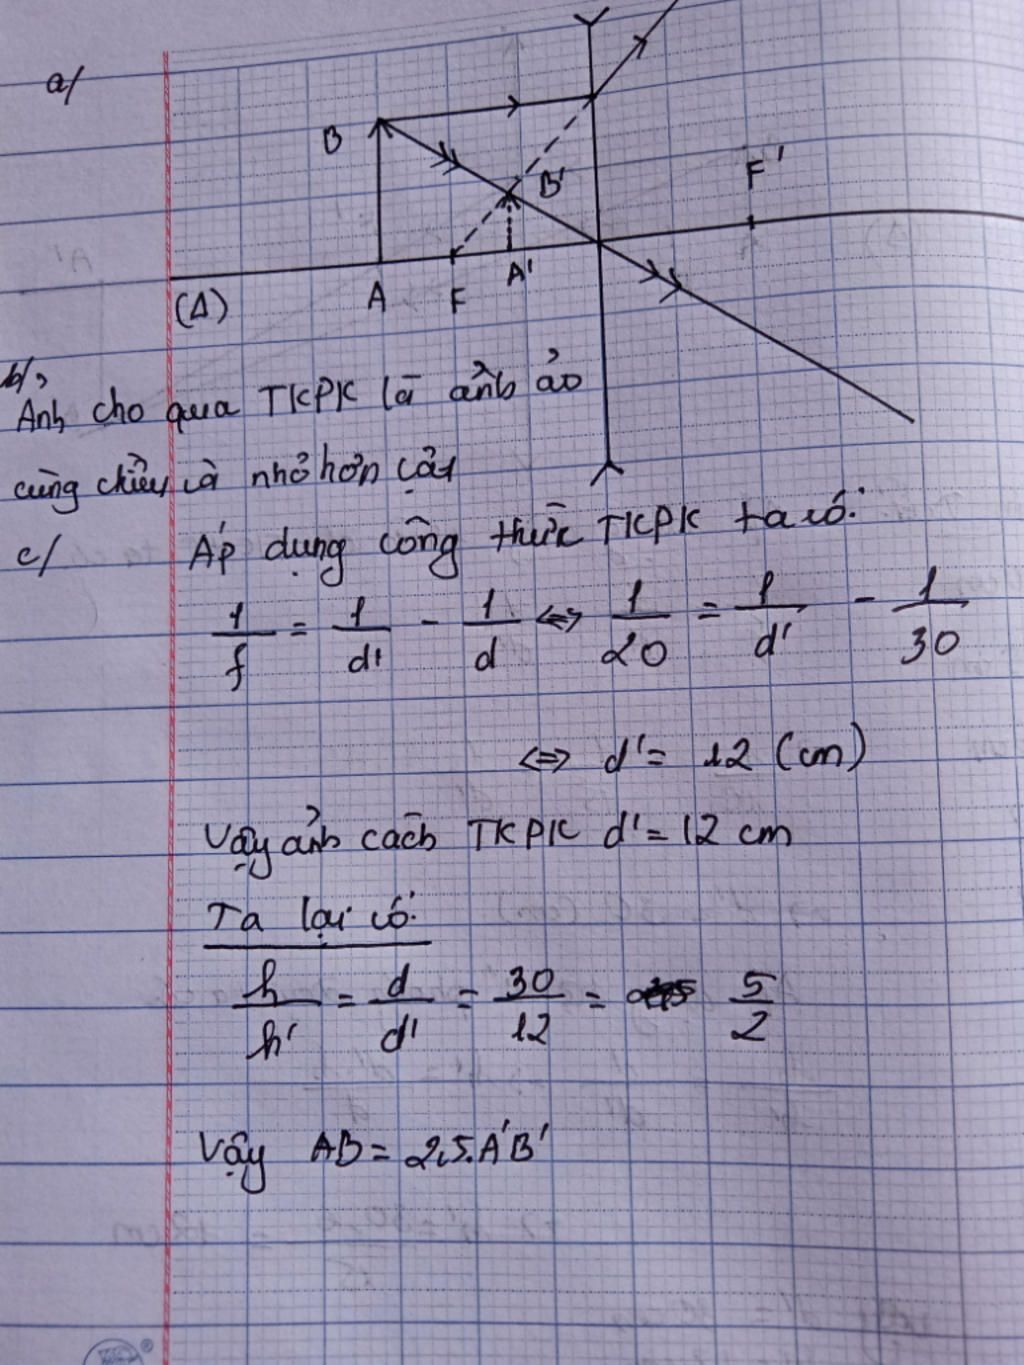 a/
B
B'
F'
(Δ)
A
F
A'
b/
Ảnh cho qua TKPK là ảnh ảo
cùng chiều và nhỏ hơn vật
c/ Áp dụng công thức TKPK ta có:
1/f = 1/d' - 1/d ⇔ 1/20 = 1/d' - 1/30
⇔ d' = 12 (cm)
Vậy ảnh cách TKPK d' = 12 cm
Ta lại có:
h/h' = d/d' = 30/12 = 5/2
Vậy AB = 2,5.A'B'